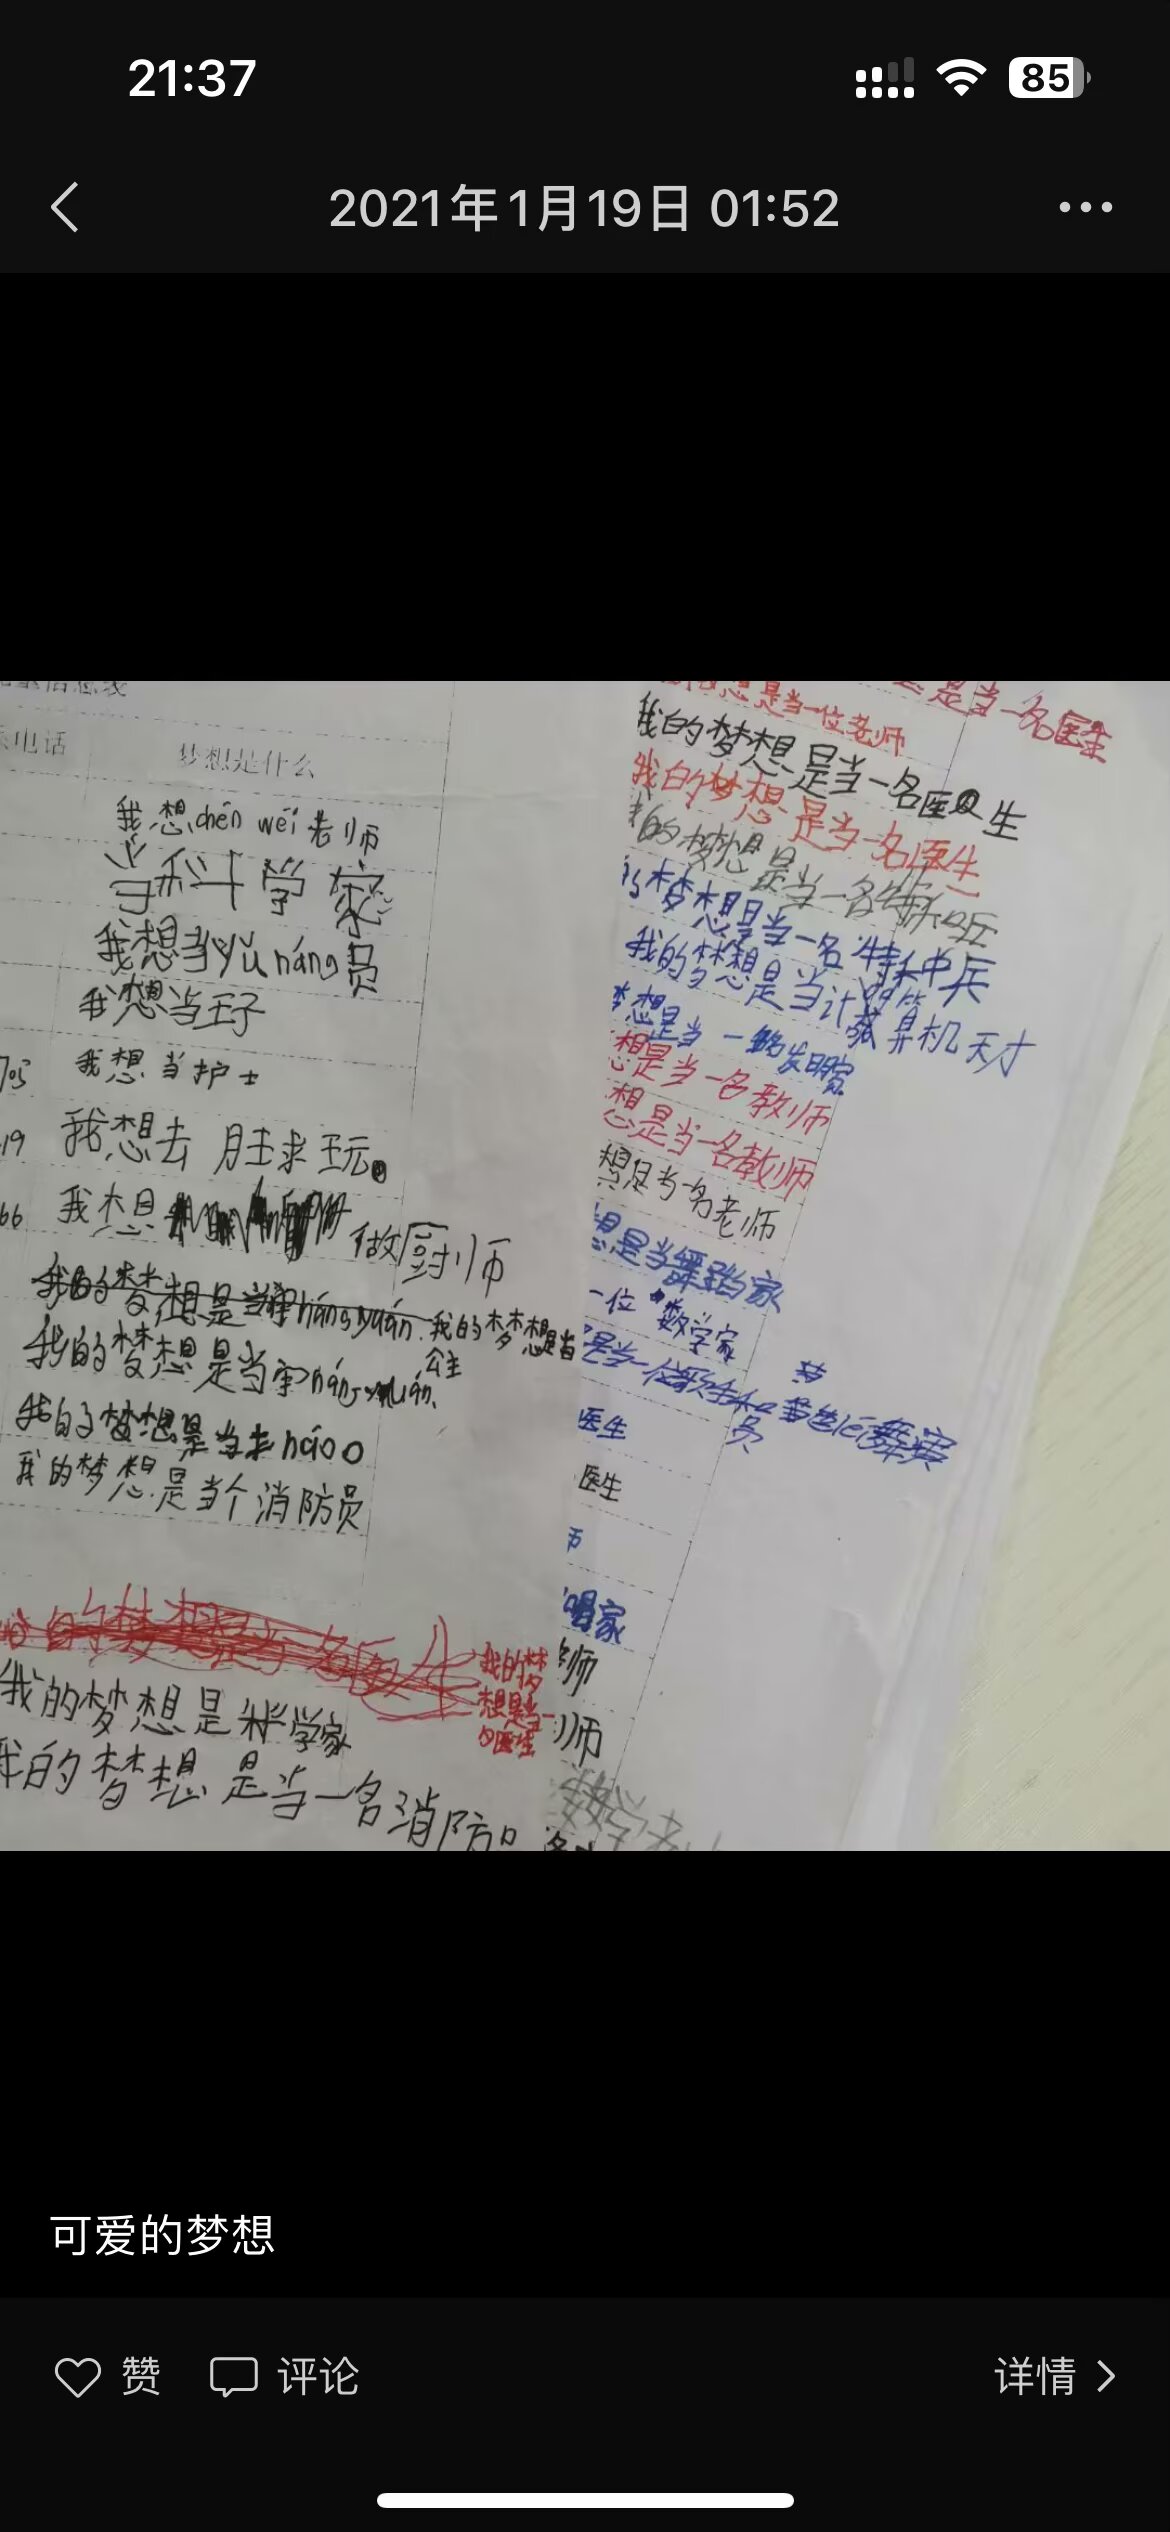 21:37
85
2021年1月19日 01:52
梦想是什么
我想chén wéi老师
当科学家
我想当yǔ háng员
我想当王子
我想当护士
我想去月球玩
我想 做厨师
我的梦想是当 háng yuán 我的梦想是当
公主
我的梦想是当宇háng yuán
我的梦想是当
我的梦想是当个消防员
我的梦想是科学家
我的梦
想是当一
名医生
我的梦想是当一名消防
是当一名医生
想是当一位老师
我的梦想是当一名医生
我的梦想是当一名医生
的梦想是当一名
梦想是当一名特种兵
我的梦想是当计算机天才
梦想是当一名发明家
想是当一名教师
想是当一名教师
想是当一名老师
想是当舞蹈家
一位数学家
是当一位歌手和芭lěi舞演
员
医生
医生
师
唱家
师
师
数学老
可爱的梦想
赞
评论
详情